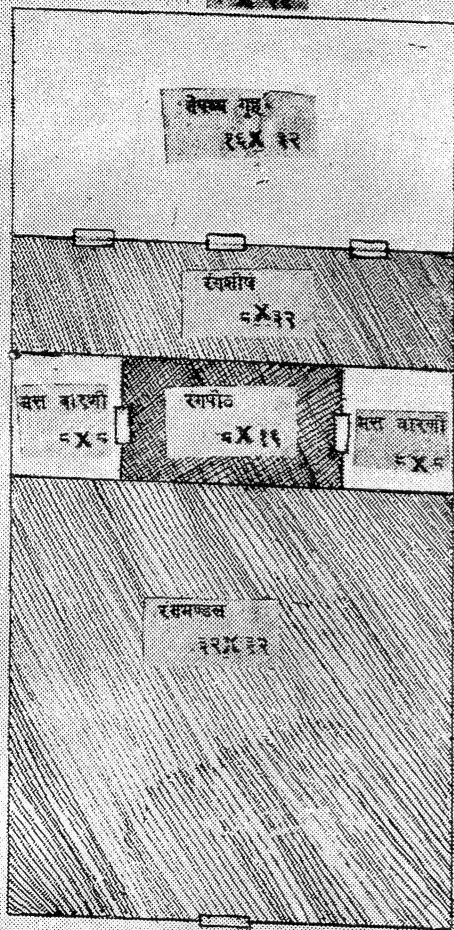 नेपथ्य गृह
१६X ३२
रंगशीष
८X३२
मत्त वारणी
८X८
रंगपीठ
८X१६
मत्त वारणी
८X८
रंगमण्डल
३२X३२